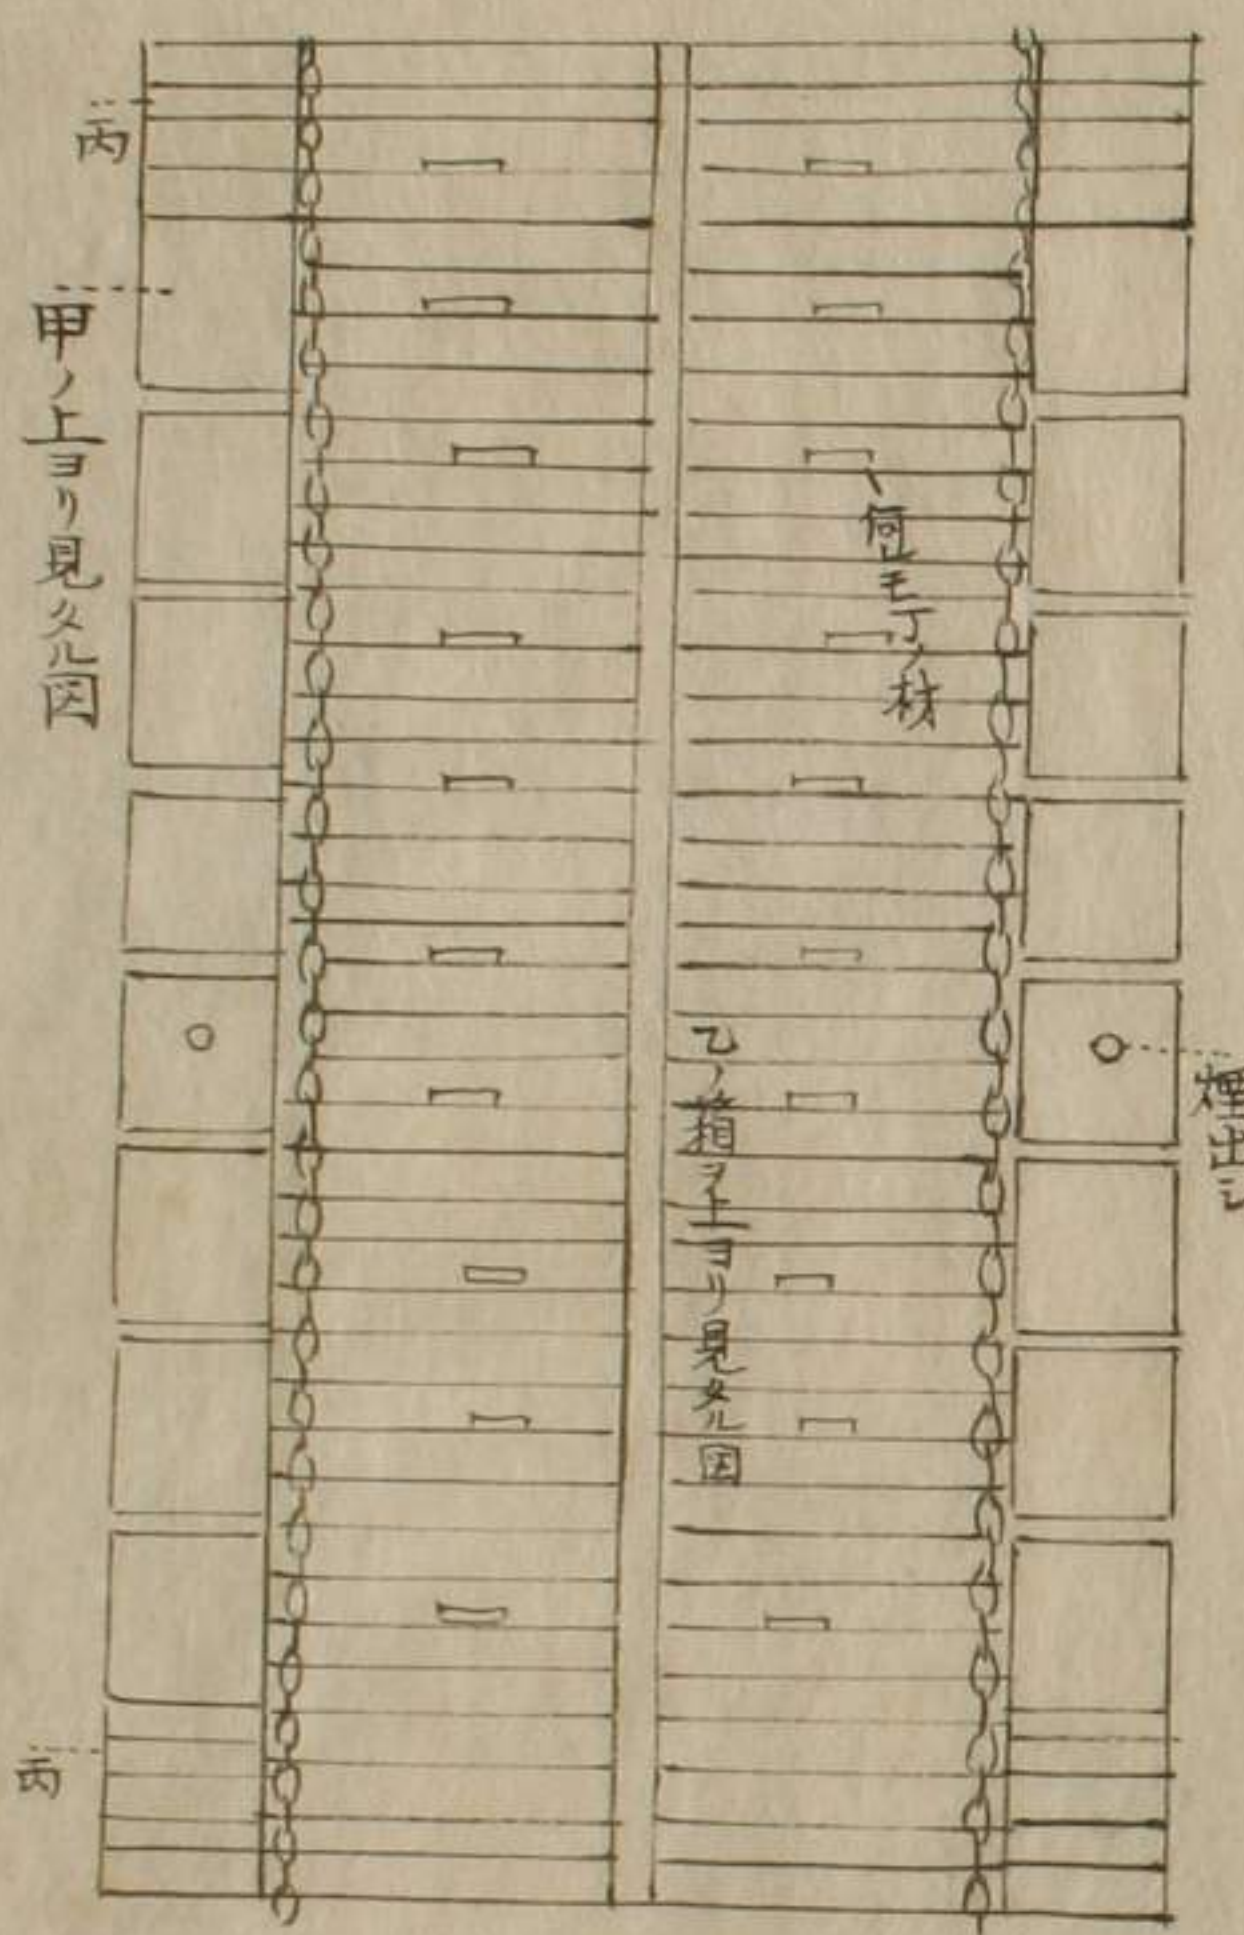 丙
甲ノ上ヨリ見タル図
何レモ丁ノ材
乙ノ箱ヲ上ヨリ見タル図
煙出シ
丙